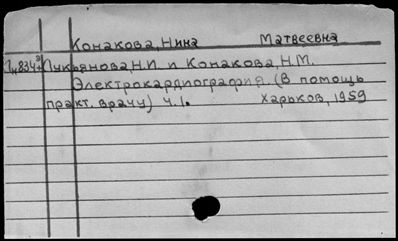 Конакова, Нина Матвеевна
Лукьянова, Н.И. и Конакова, Н.М.
Электрокардиография. (В помощь
практ. врачу) Ч.1. Харьков, 1959